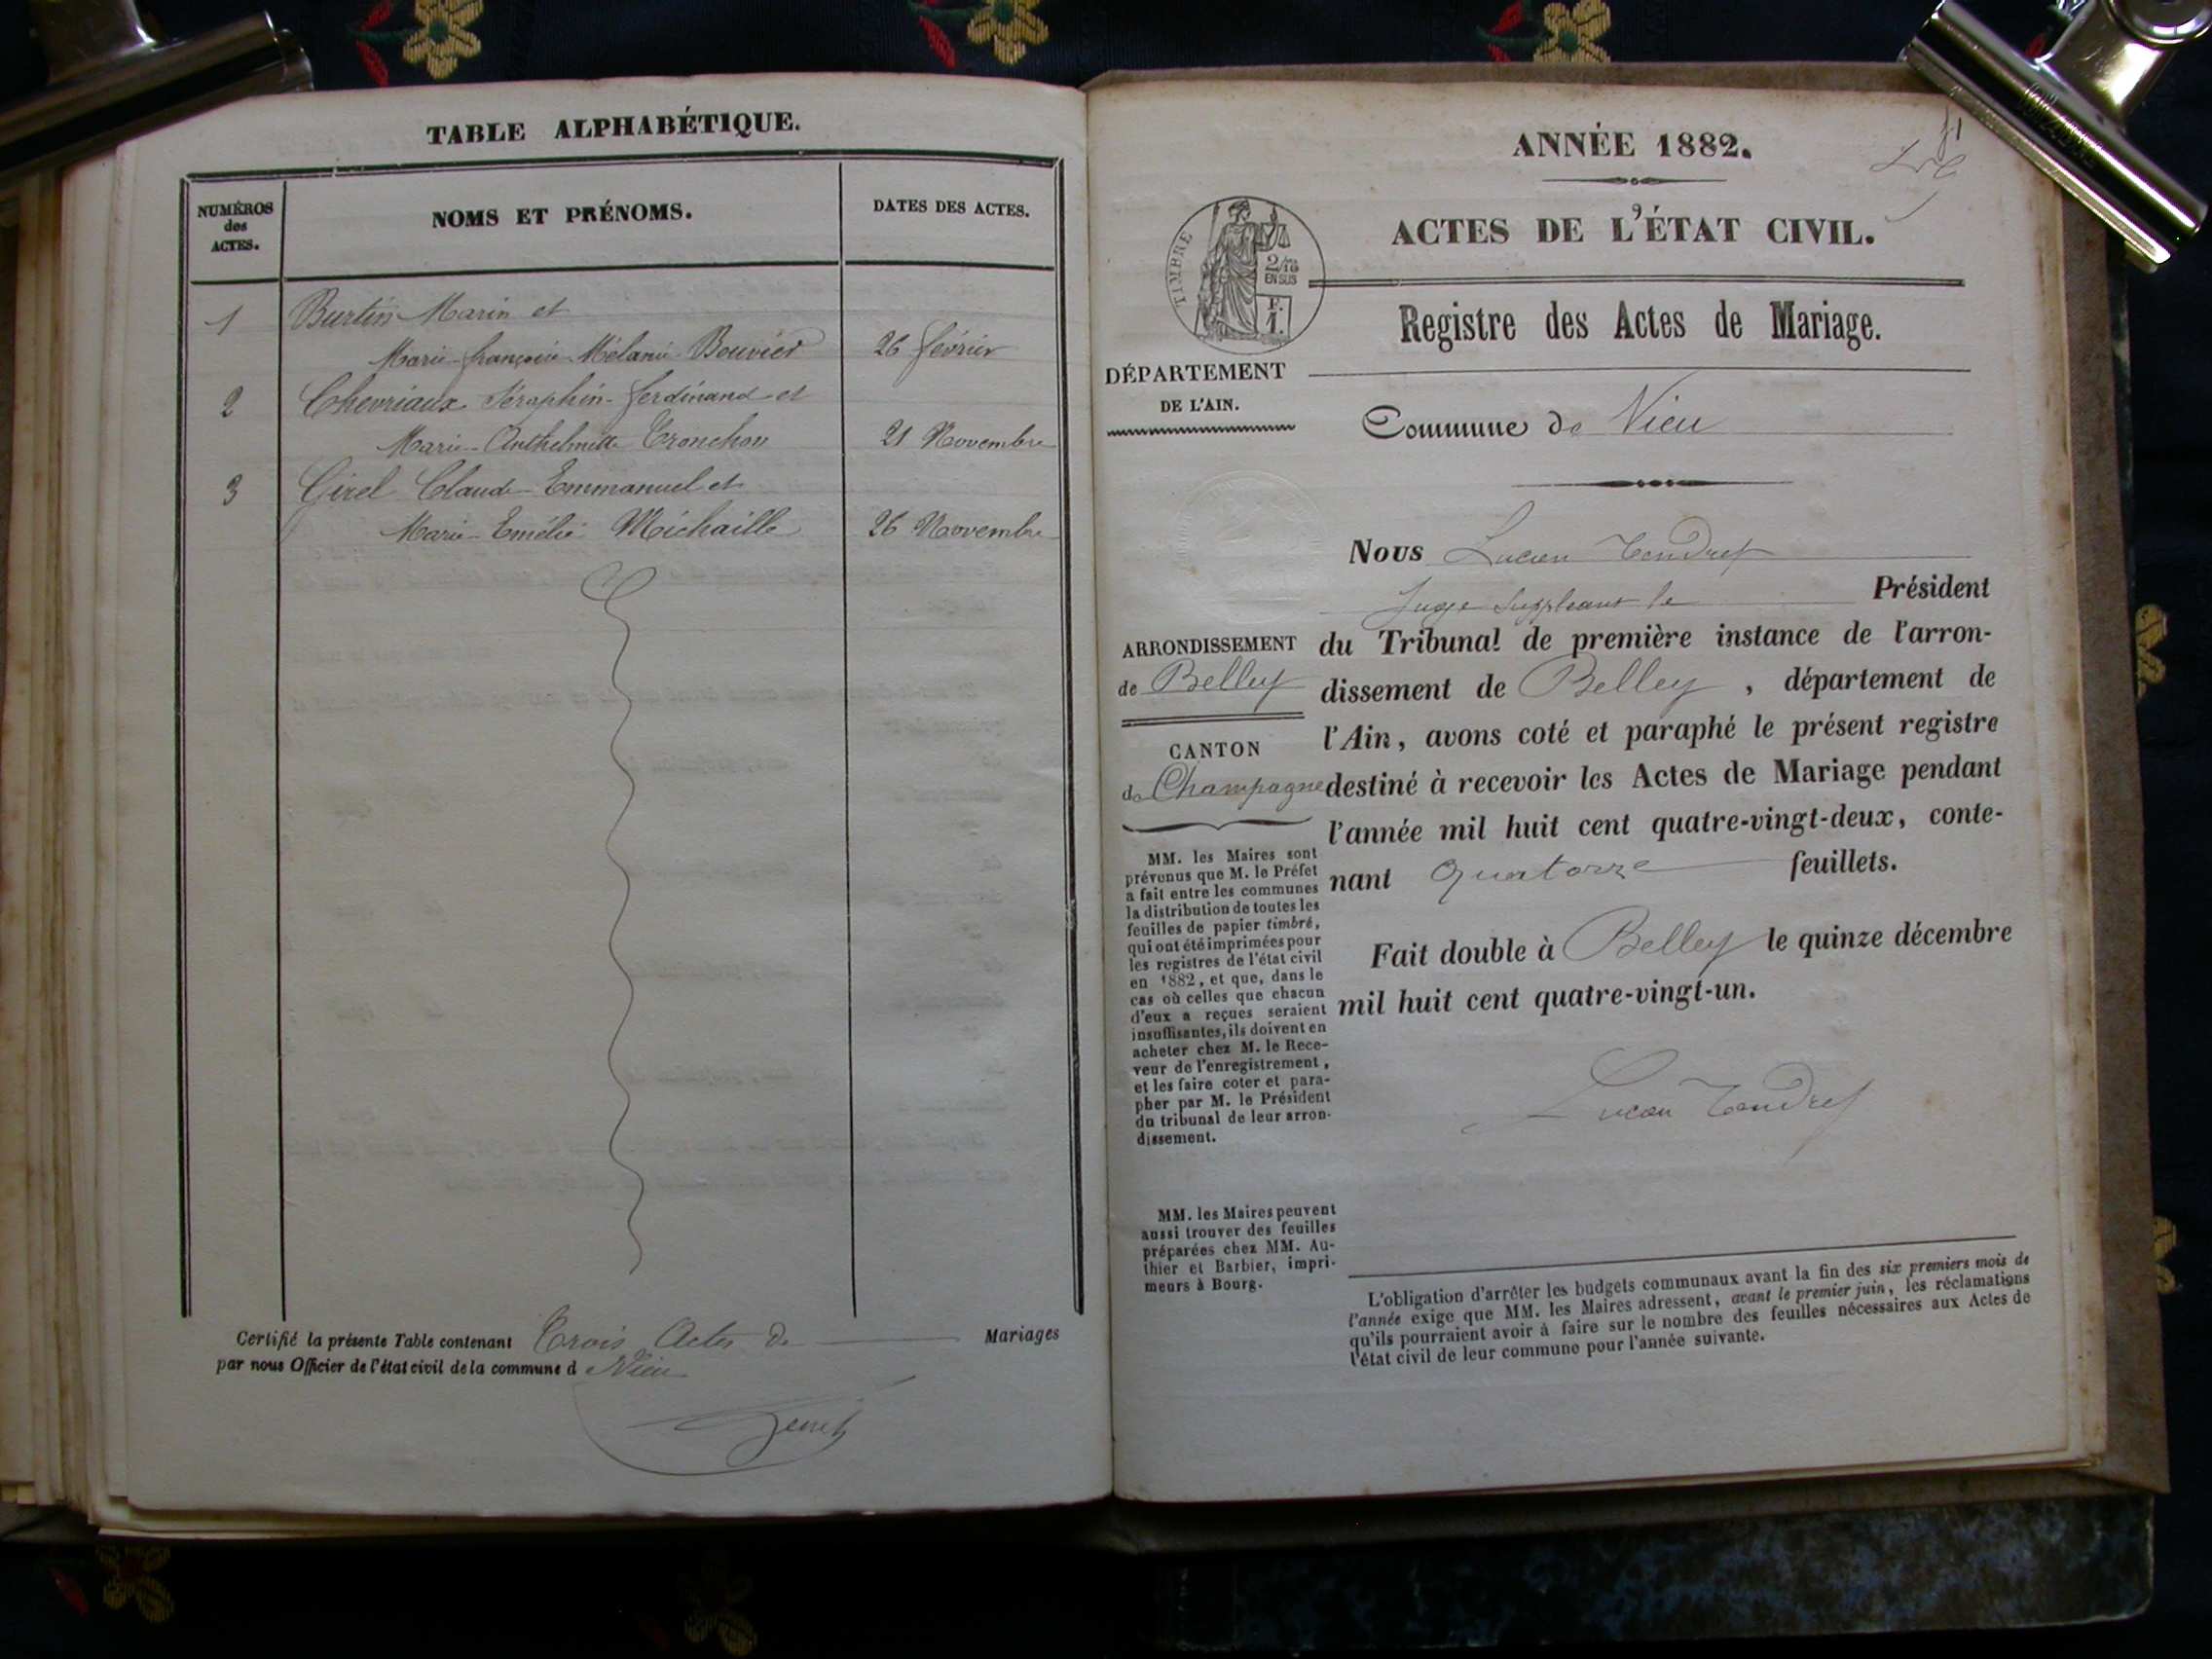 TABLE ALPHABÉTIQUE.
NUMÉROS
des
ACTES.
NOMS ET PRÉNOMS.
DATES DES ACTES.
1 Burtin Marin et
Marie-françoise-Mélanie Bouvier 26 février
2 Chevriaux Séraphin-ferdinand et
Marie-Anthelmette Tronchon 21 Novembre
3 Girel Claude-Emmanuel et
Marie-Emélie Michaille 26 Novembre
Certifié la présente Table contenant Trois Actes de Mariages
par nous Officier de l'état civil de la commune d Vieu
ANNÉE 1882.
ACTES DE L'ÉTAT CIVIL.
TIMBRE
2/10
EN SUS
F.
1.
Registre des Actes de Mariage.
DÉPARTEMENT
DE L'AIN.
Commune de Vieu
Nous Lucien Tendret
Juge Suppléant le Président
ARRONDISSEMENT
de Belley
CANTON
de Champagne
du Tribunal de première instance de l'arron-
dissement de Belley, département de
l'Ain, avons coté et paraphé le présent registre
destiné à recevoir les Actes de Mariage pendant
l'année mil huit cent quatre-vingt-deux, conte-
nant quatorze feuillets.
Fait double à Belley le quinze décembre
mil huit cent quatre-vingt-un.
Lucien Tendret
MM. les Maires sont
prévenus que M. le Préfet
a fait entre les communes
la distribution de toutes les
feuilles de papier timbré,
qui ont été imprimées pour
les registres de l'état civil
en 1882, et que, dans le
cas où celles que chacun
d'eux a reçues seraient
insuffisantes, ils doivent en
acheter chez M. le Rece-
veur de l'enregistrement,
et les faire coter et para-
pher par M. le Président
du tribunal de leur arron-
dissement.
MM. les Maires peuvent
aussi trouver des feuilles
préparées chez MM. Au-
thier et Barbier, impri-
meurs à Bourg.
L'obligation d'arrêter les budgets communaux avant la fin des six premiers mois de
l'année exige que MM. les Maires adressent, avant le premier juin, les réclamations
qu'ils pourraient avoir à faire sur le nombre des feuilles nécessaires aux Actes de
l'état civil de leur commune pour l'année suivante.